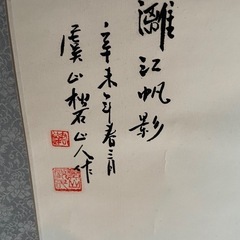 灕江帆影
辛未年春三月
虞山樵山人作